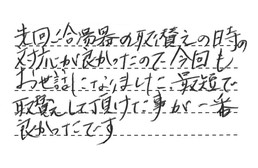 先回、給湯器の取替えの日時の
対応が良かったので今回も
お世話になりました。最短で
取替えして頂けた事が一番
良かったです